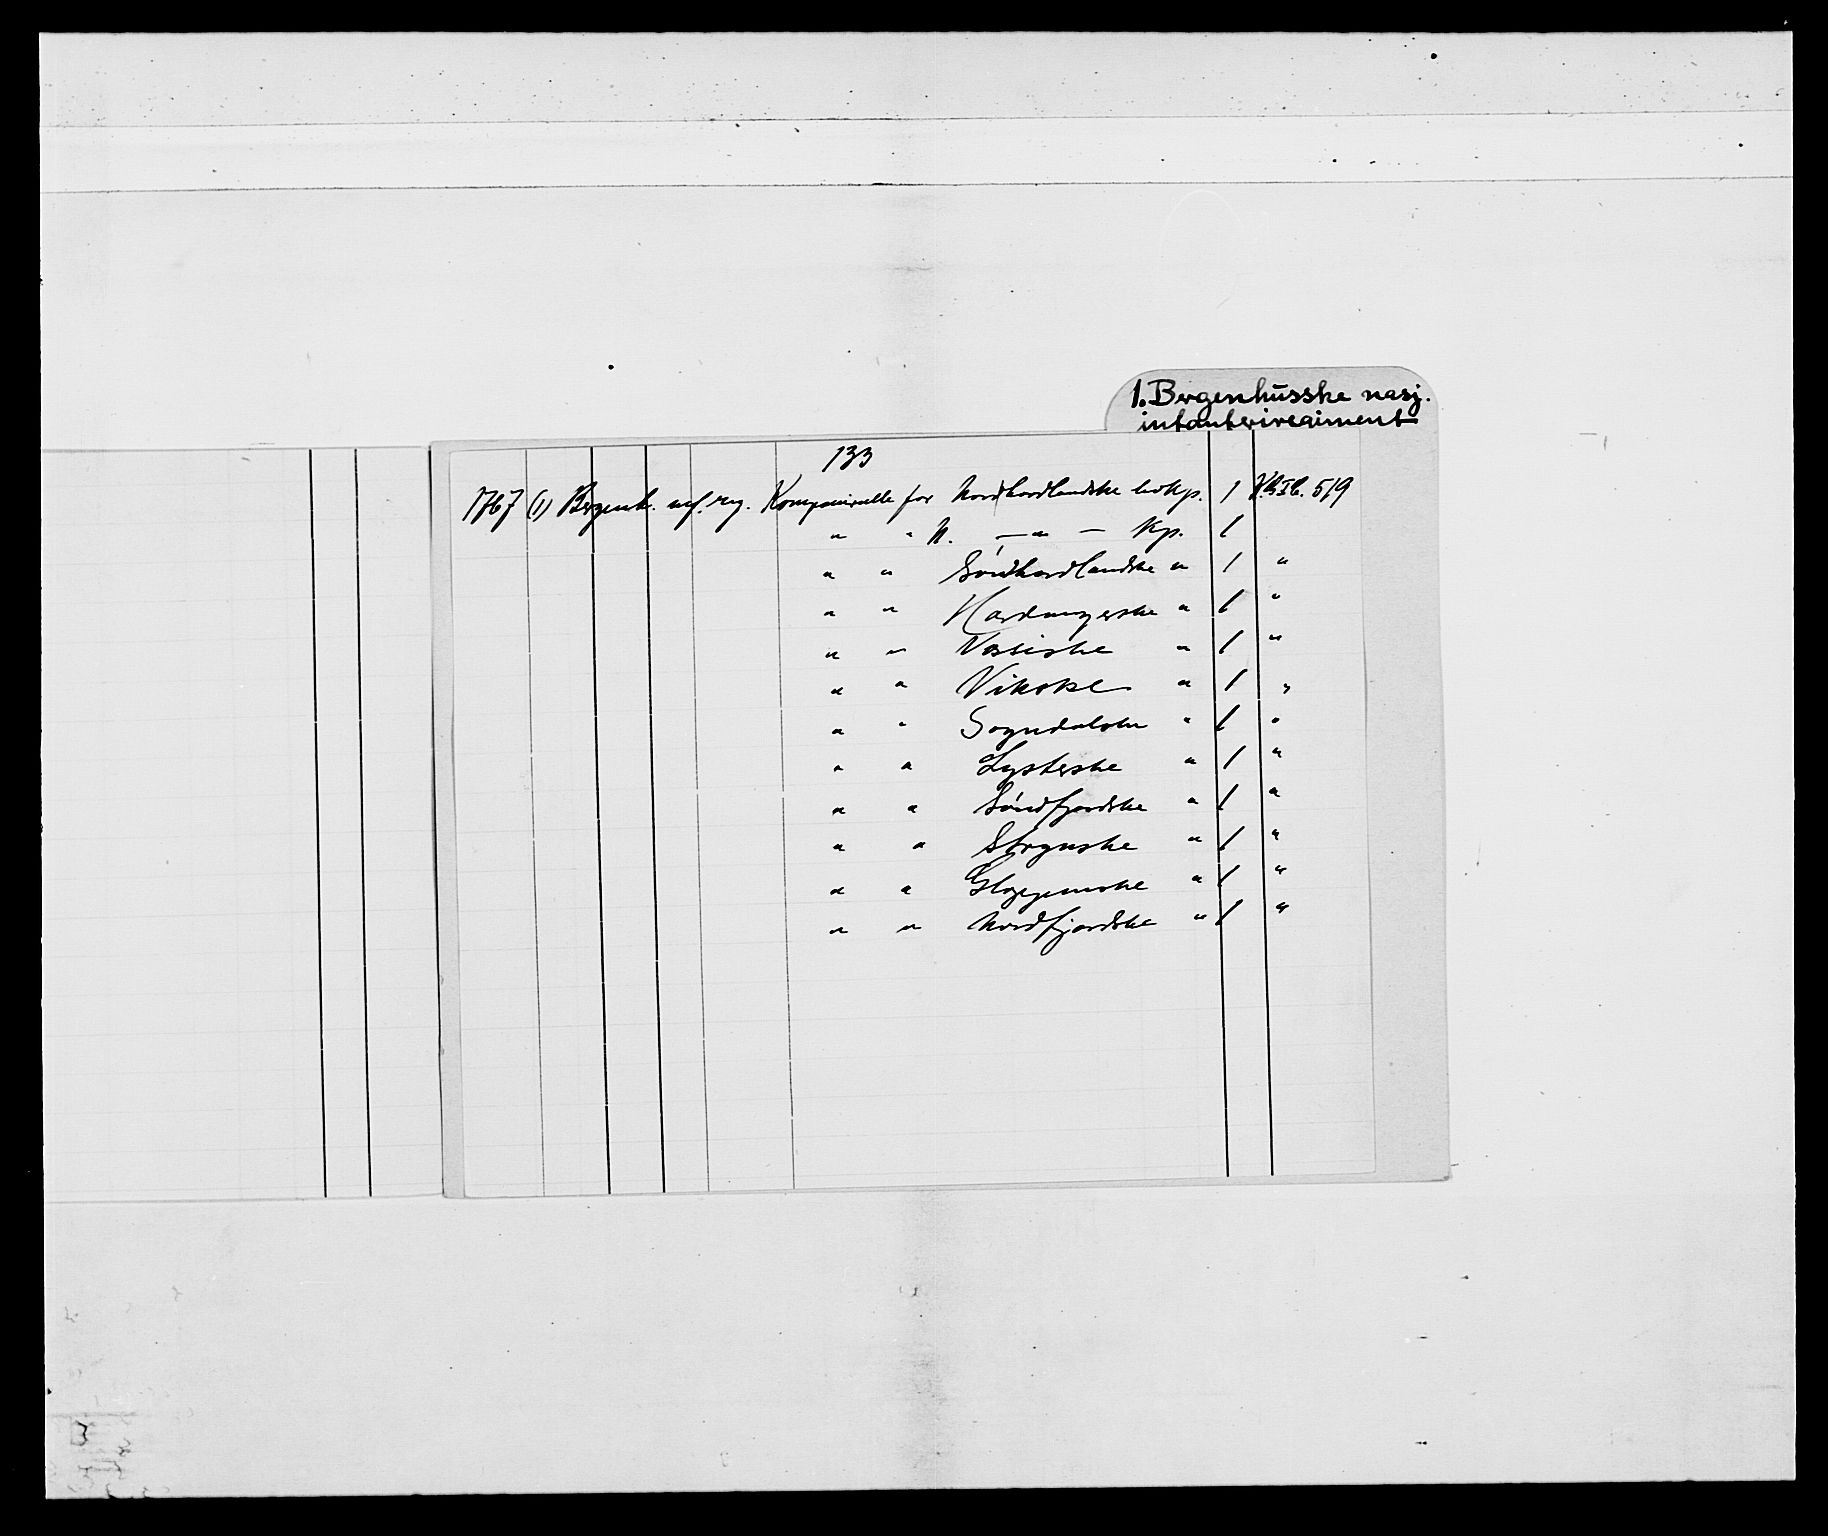 1. Bergenhūsske nasj.
infanteriregiment
133
1767 (1) Bergenh. inf. reg. Kompanirulle for Nordhordlandske livkp. 1 519
" " N. — " — Kp. 1
" " Söndhordlandske " 1 "
" " Hardangerske " 1 "
" " Vossiske " 1 "
" " Vikske " 1 "
" " Sogndalske " 1 "
" " Lysterske " 1 "
" " Söndfjordske " 1 "
" " Strynske " 1 "
" " Gloppenske " 1 "
" " Nordfjordske " 1 "